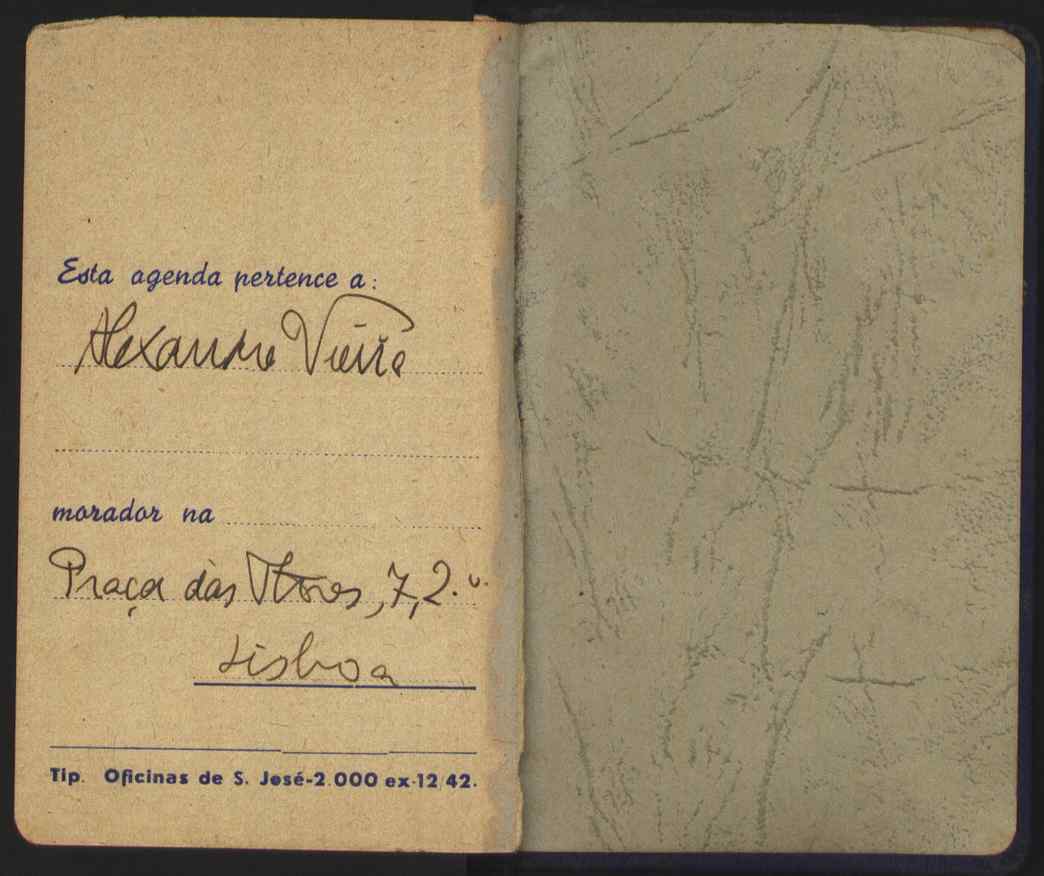 Esta agenda pertence a:
Alexandre Vieira
morador na
Praça das Flores, 7, 2.º
Lisboa
Tip. Oficinas de S. José-2.000 ex-12/42.